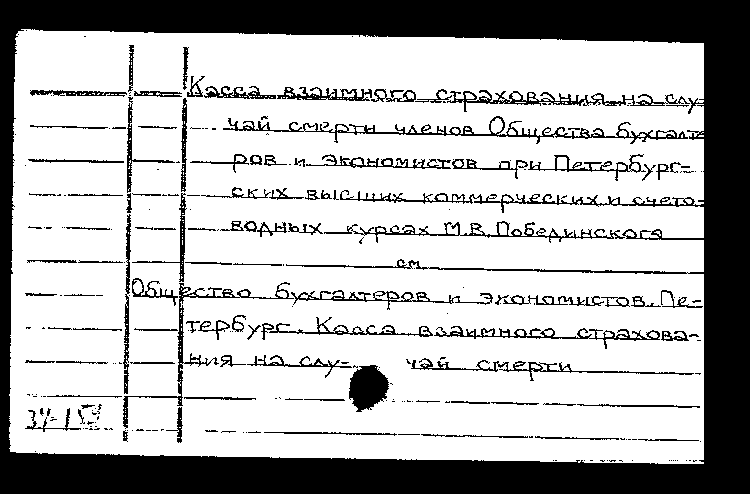 Касса взаимного страхования на слу-
чай смерти членов Общества бухгалте
ров и экономистов при Петербург-
ских высших коммерческих и счето-
водных курсах М.В. Побединского
см
Общество бухгалтеров и экономистов. Пе-
тербург. Касса взаимного страхова-
ния на слу- чай смерти